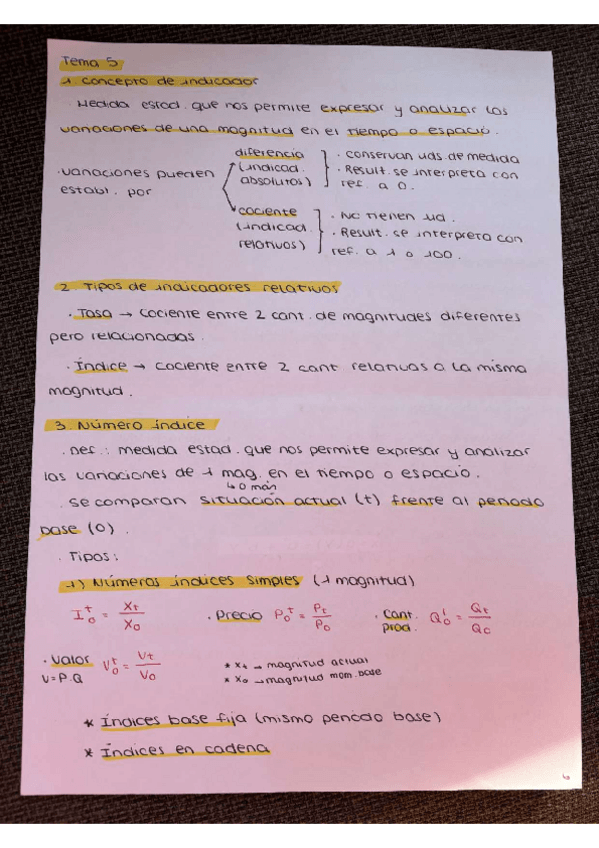 Tema 5
1 Concepto de indicador
· Medida estad. que nos permite expresar y analizar las
variaciones de una magnitud en el tiempo o espacio.
· variaciones pueden establ. por
diferencia (indicad. absolutos)
· conservan uds. de medida
· Result. se interpreta con ref. a 0.
cociente (indicad. relativos)
· No tienen ud.
· Result. se interpreta con ref. a 1 o 100.
2. Tipos de indicadores relativos
· Tasa → cociente entre 2 cant. de magnitudes diferentes
pero relacionadas.
· Índice → cociente entre 2 cant relativas a la misma
magnitud.
3. Número índice
· Def.: medida estad. que nos permite expresar y analizar
las variaciones de 1 mag. en el tiempo o espacio.
↳ o más
· se comparan situación actual (t) frente al periodo
base (0).
· Tipos:
1) Números índices simples (1 magnitud)
I₀ᵗ = Xt / X0
· Precio P₀ᵗ = Pt / P0
· Cant. prod. Q₀ᵗ = Qt / Q0
· Valor V₀ᵗ = Vt / V0
V=P.Q
* Xt → magnitud actual
* X0 → magnitud mom. base
* Índices base fija (mismo periodo base)
* Índices en cadena